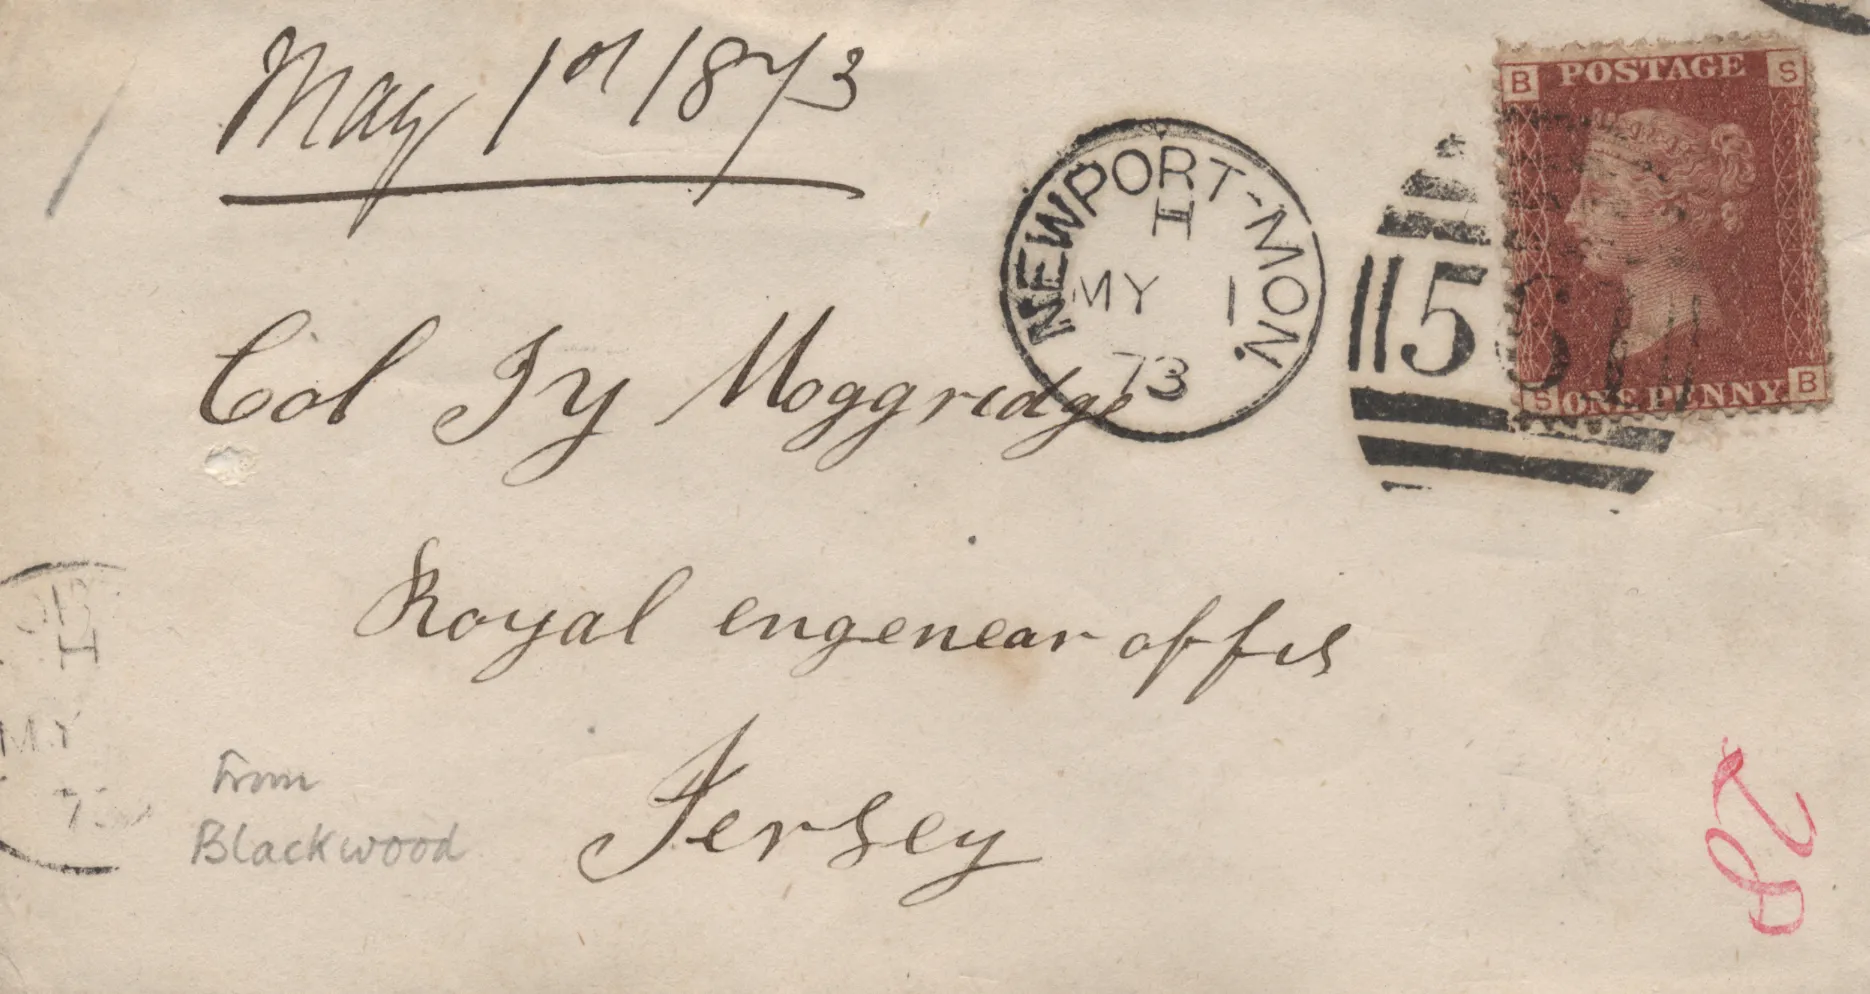 May 1st 1873
B POSTAGE S
NEWPORT-MON.
H
MY 1
73
55
S ONE PENNY. B
Col Jy Moggridge
Royal engenear offis
Jersey
H
MY
7
From
Blackwood
28